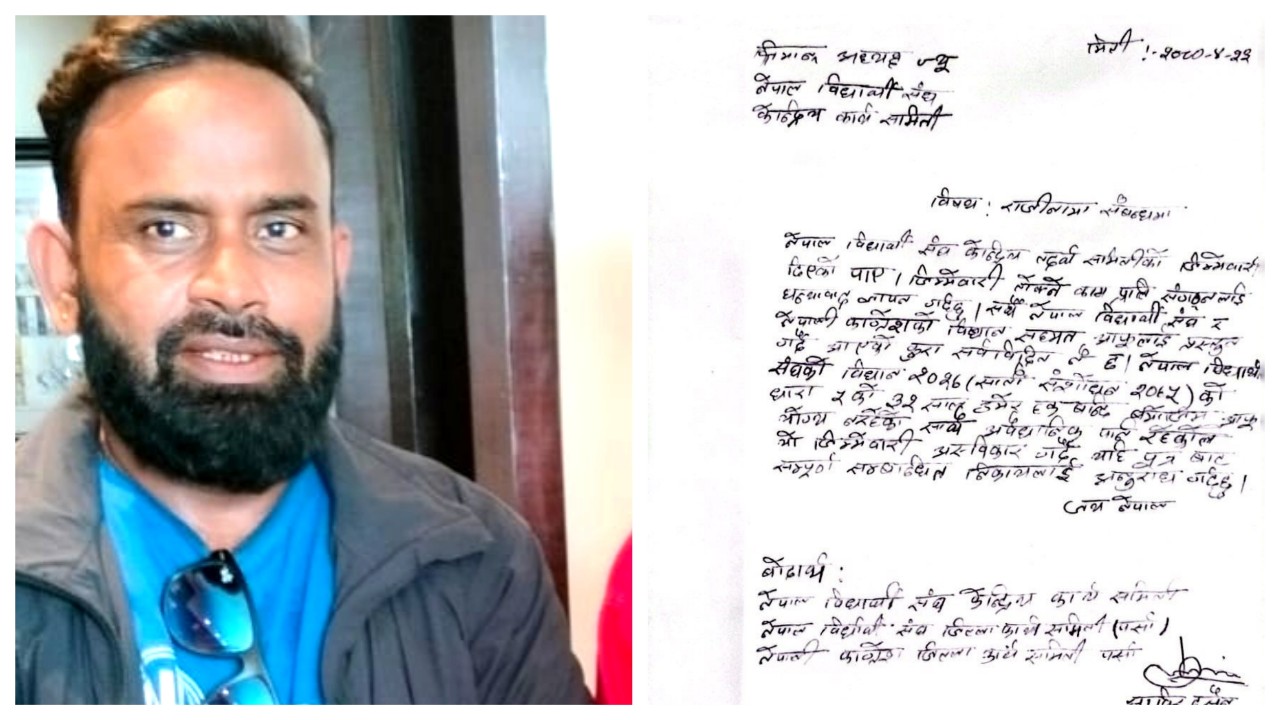 श्रीमान अध्यक्ष ज्यू
मिती :- २०८०-४-२२
नेपाल विद्यार्थी संघ
केन्द्रिय कार्य समिती
विषय : राजीनामा संबन्धमा
नेपाल विद्यार्थी संघ केन्द्रिय तदर्थ समितीको जिम्मेवारी
दिएको पाए । जिम्मेवारी तोक्ने काम प्रति संगठनलाई
धन्यावाद ज्ञापन गर्दछु । सर्थै नेपाल विद्यार्थी संघ र
नेपाली काँग्रेसको विधान सहमत आफुलाई
गर्दै आएको कुरा सर्वविदित नै छ। नेपाल विद्यार्थी
संघको विधान २०२६ (सातौ संशोधन २०६५) को
धारा २ को ३२ साल उमेर हद
योग्य नरहेको साथै अवैधानिक पनि रहेकोले
यो जिम्मेवारी अस्विकार गर्दै यहि पत्र बाट
सम्पूर्ण सम्बान्धित निकायलाई अनुरोध गर्दछु ।
जय नेपाल
बोधार्थ :
नेपाल विद्यार्थी संघ केन्द्रिय कार्य समिती
नेपाल विद्यार्थी संघ जिल्ला कार्य समिती (पर्सा)
नेपाली काँग्रेस जिल्ला कार्य समिती पर्सा